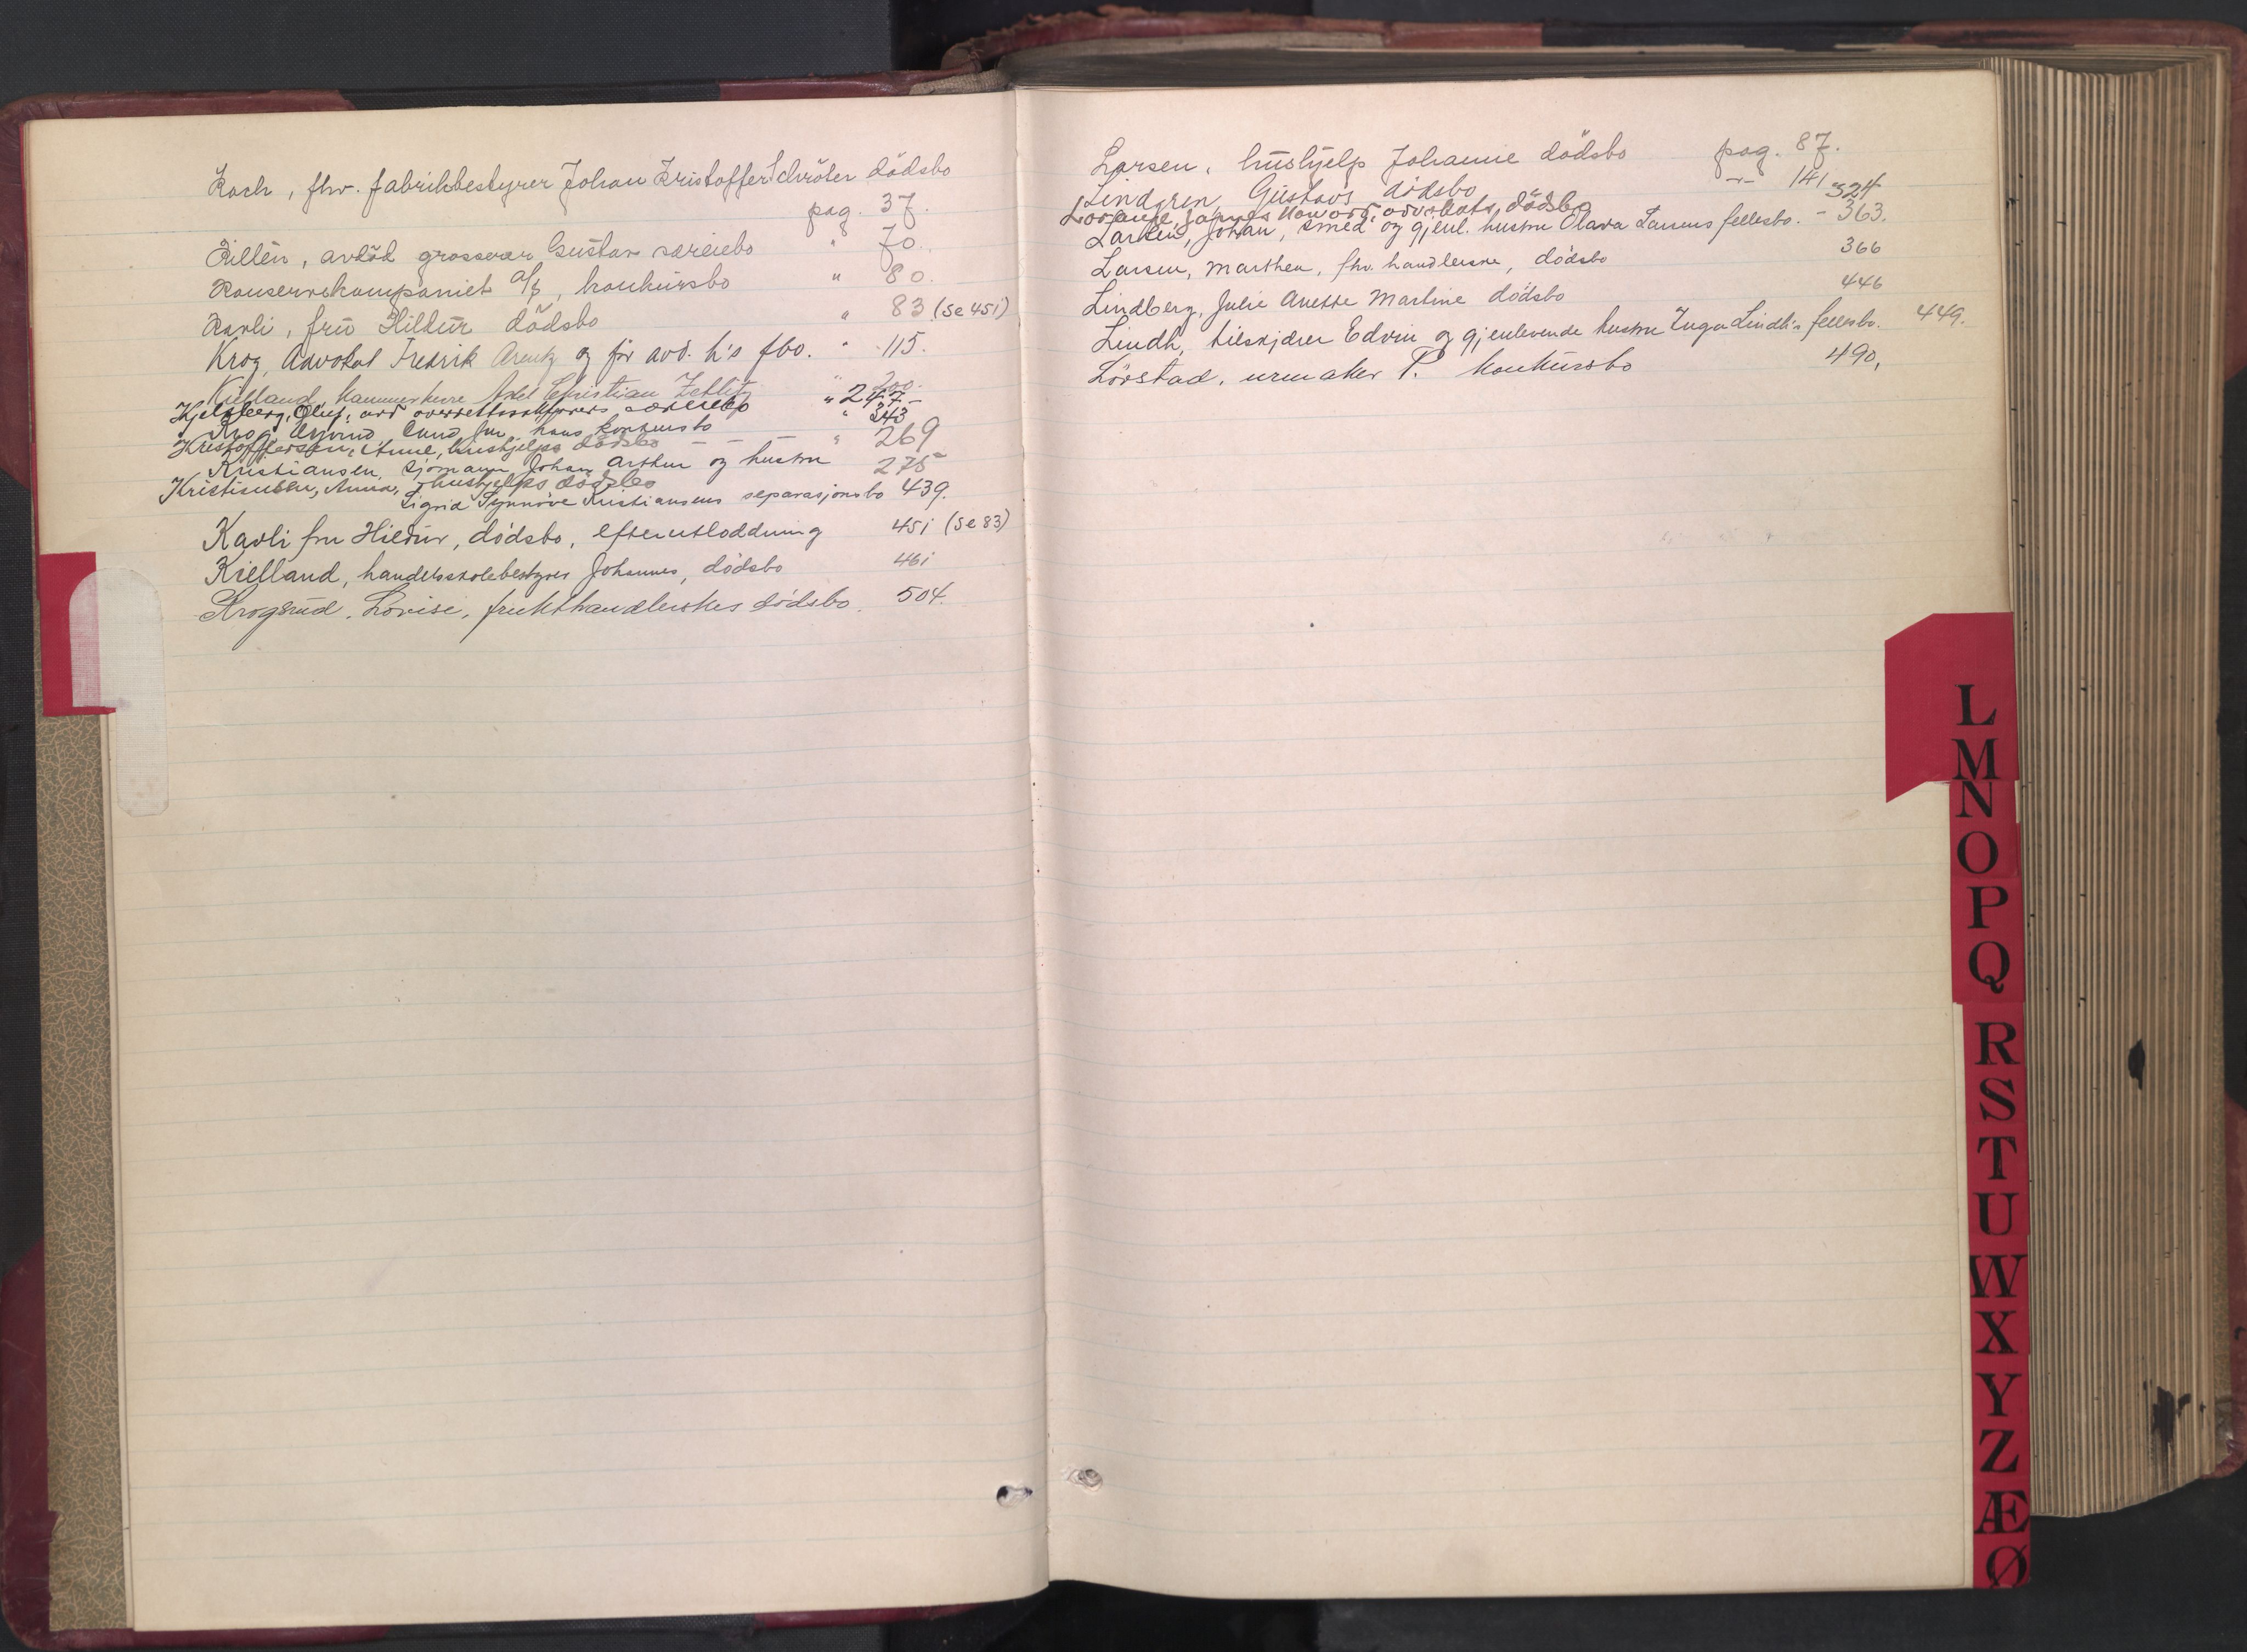 Koch, fhv. fabrikbestyrer Johan Kristoffer Schröter dödsbo
pag. 37.
Killén, avdöd grosserer Gustav særeiebo " 70.
Konservekompaniet a/s, konkursbo " 80.
Kavli, fru Hildur dödsbo " 83 (se 451)
Krog, Advokat Fredrik Arentz og før avd. h's fbo. " 115.
Kielland, kammerherre Axel Christian Zetlitz " 200.
Kjelsberg, Oluf, avd overrettssakførers særeiebo " 247-
Krog Eyvind Cand jur hans konkursbo " 343
Kristoffersen, Anne, hushjelps dödsbo - - - " 269
Kristiansen, sjømann Johan Arthur og hustru 275
Kristiansen, Anna, hushjelps dödsbo
Sigrid Synnöve Kristiansens separasjonsbo 439.
Kavli fru Hildur, dödsbo, efterutloddning 451 (se 83)
Kielland, handelsskolebestyrer Johannes, dödsbo 461
Krogsrud, Lovise, frukthandlerskes dödsbo. 504.
Larsen, hushjelp Johanne dödsbo pag. 87.
Lindgren, Gustavs dödsbo -"- 141
Lorange, advokats, dödsbo 324
Larsen, Johan, smed og gjenl. hustru Olava Larsens fellesbo. - 363.
Larsen, Marthea, fhv. handlerske, dödsbo 366
Lindberg, Julie Anette Martine dödsbo 446
Lindh, tilskjærer Edvin og gjenlevende hustru Inga Lindh's fellesbo. 449.
Lövstad, urmaker P. konkursbo 490,
L
M
N
O
P
Q
R
S
T
U
W
X
Y
Z
Æ
Ø